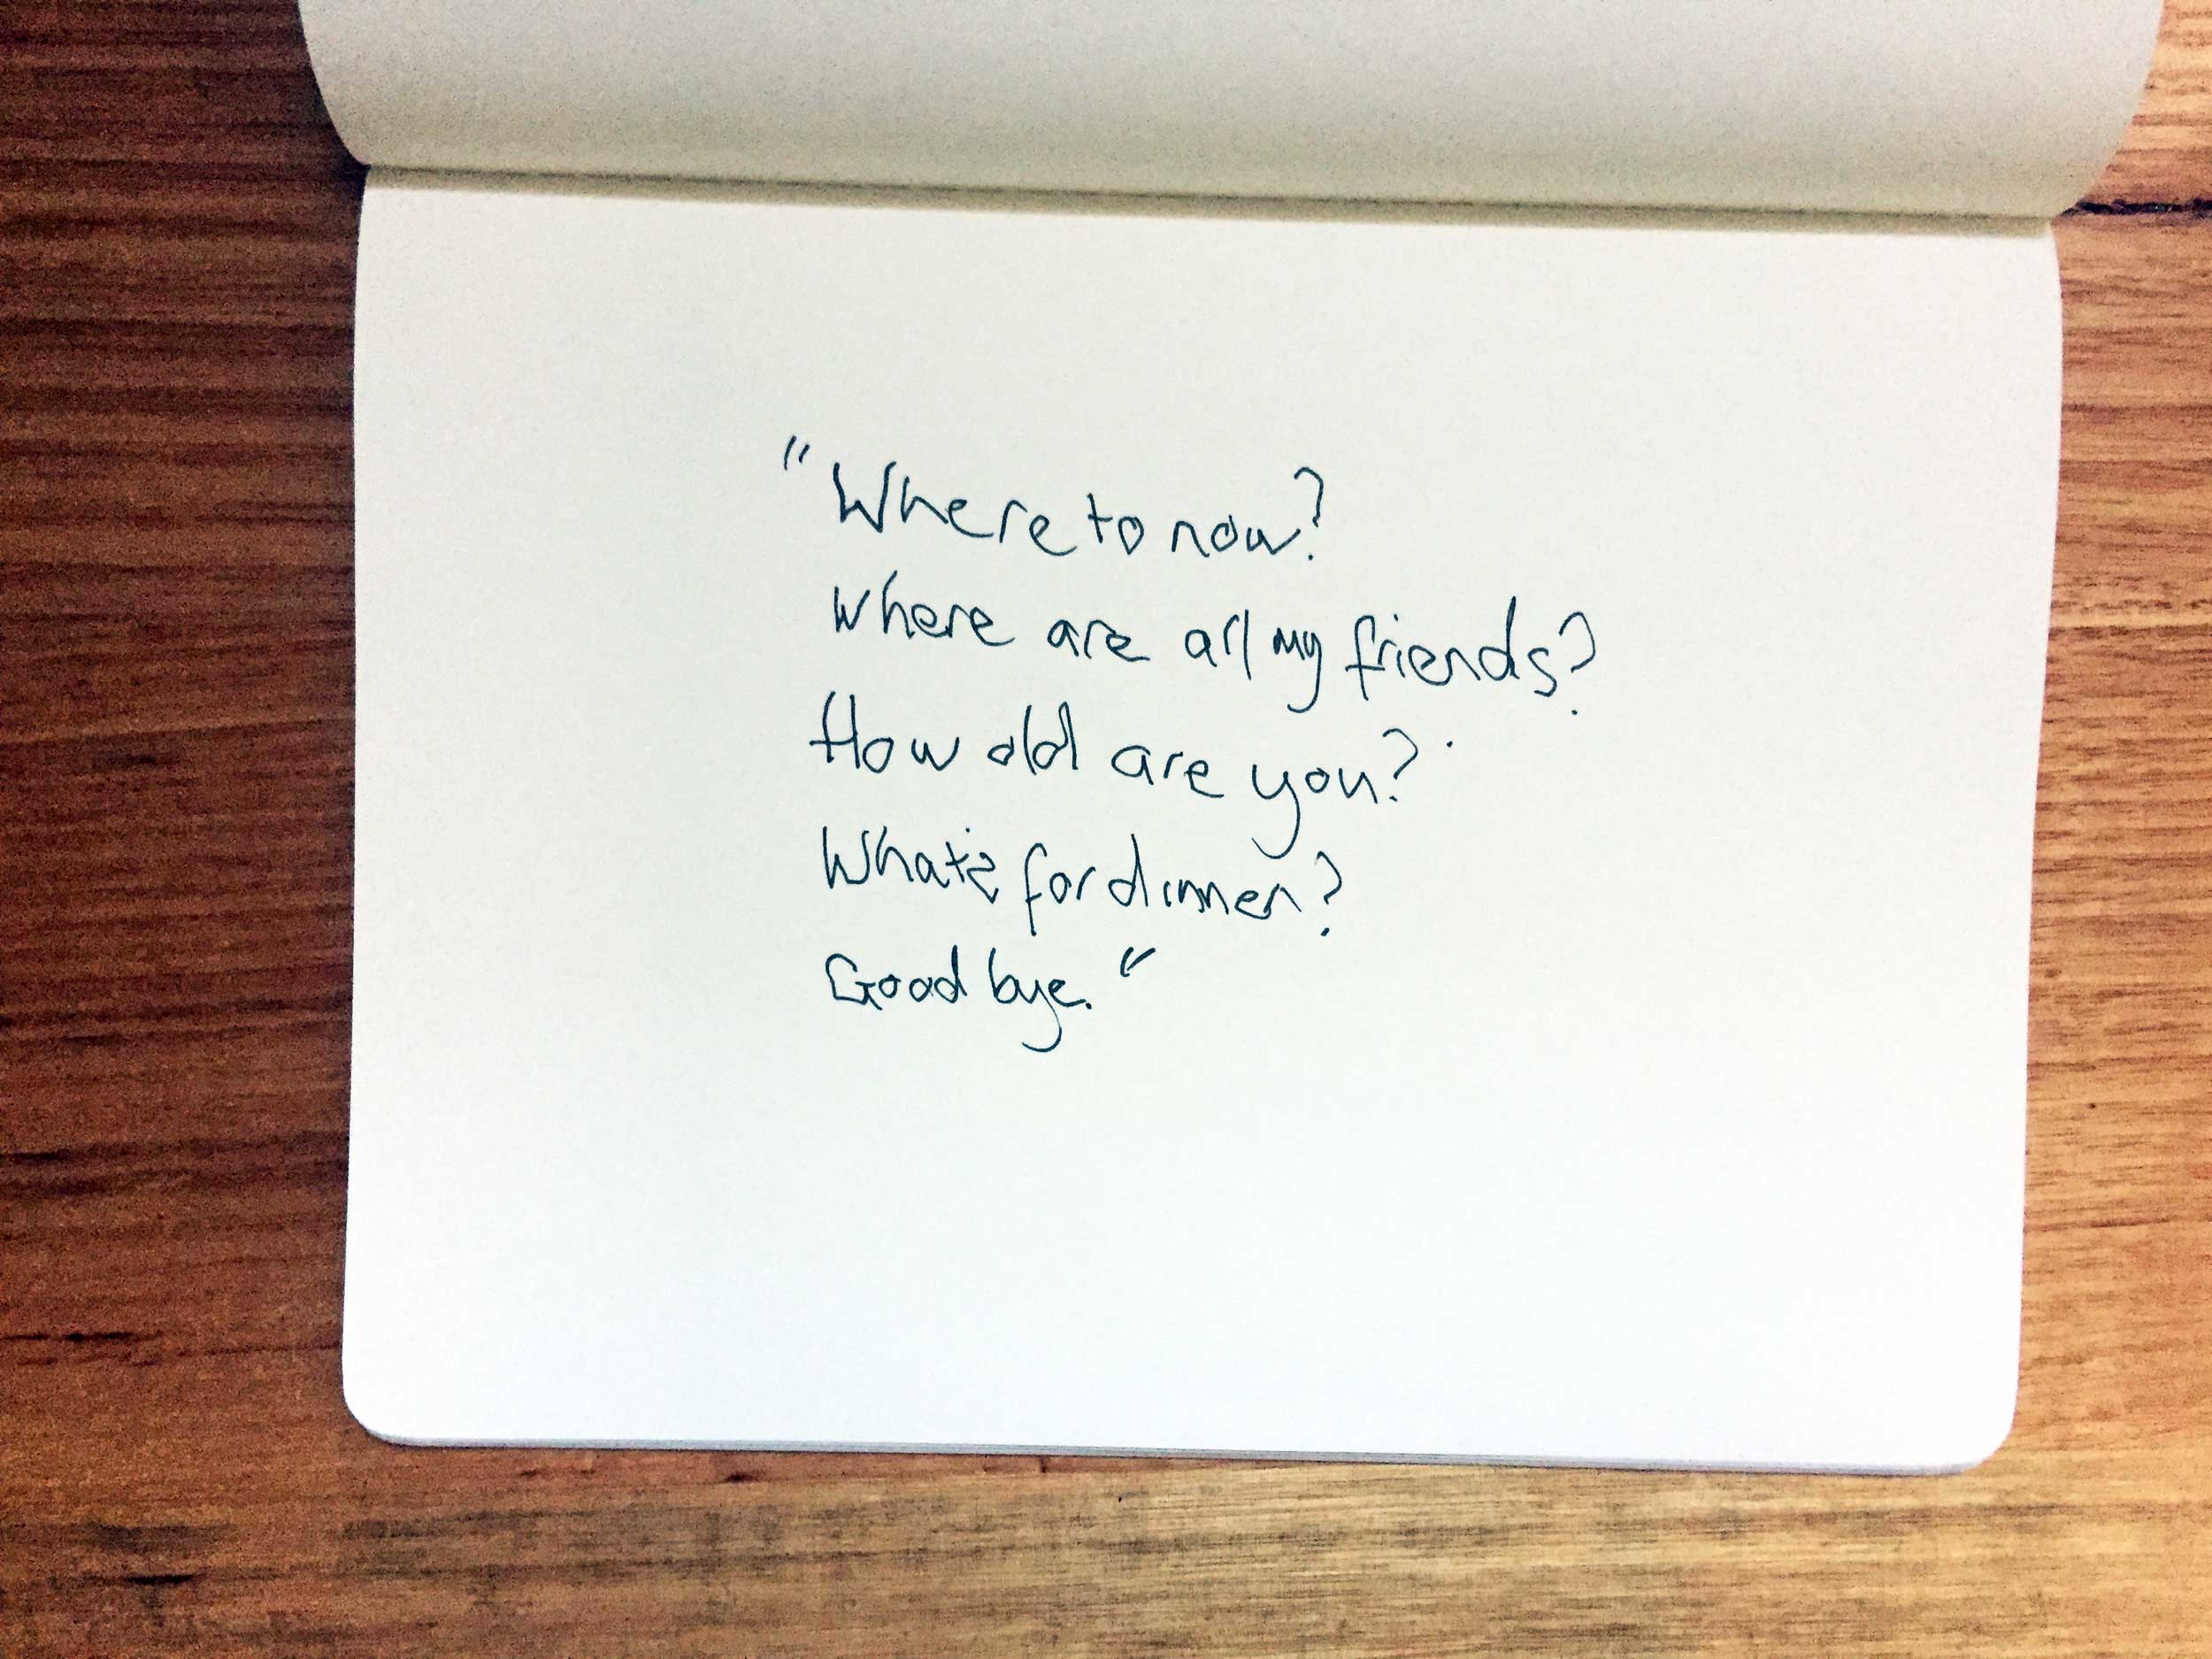 "Where to now?
Where are all my friends?
How old are you?
What's for dinner?
Good bye."